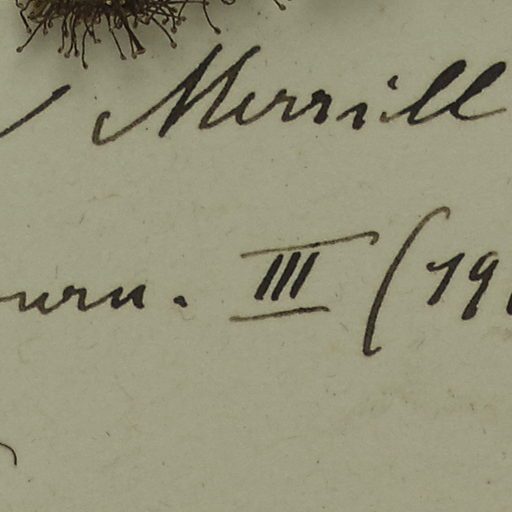 Merrill
ourn. III (19